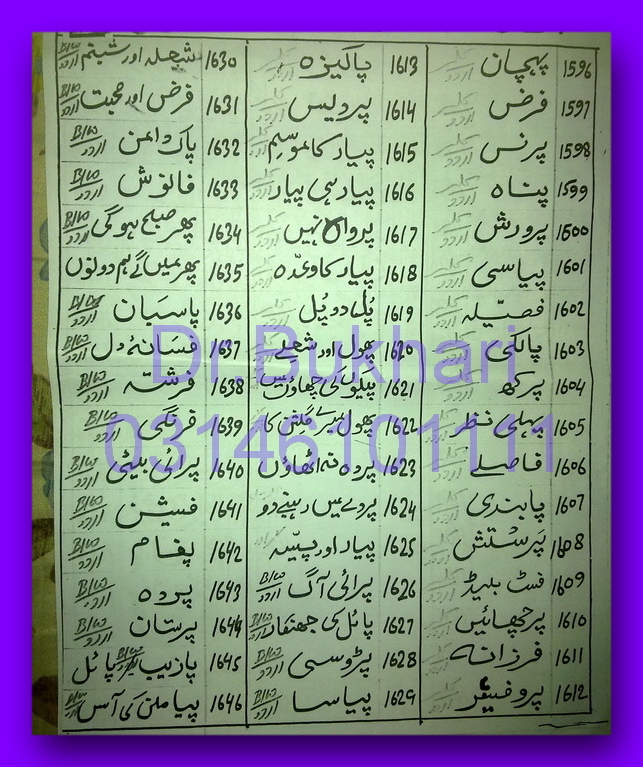 1596 پہچان کلر اردو
1597 فرض کلر اردو
1598 پرنس کلر اردو
1599 پناہ کلر اردو
1600 پرورش کلر اردو
1601 پیاسی کلر اردو
1602 فصیلہ کلر اردو
1603 پالکی کلر اردو
1604 پرکھ کلر اردو
1605 پہلی نظر کلر اردو
1606 فاصلے کلر اردو
1607 پابندی کلر اردو
1608 پرستش کلر اردو
1609 فسٹ بلیڈ کلر اردو
1610 پرچھائیں کلر اردو
1611 فرزانہ کلر اردو
1612 پروفیسر کلر اردو
1613 پاکیزہ
1614 پردیس
1615 پیار کا موسم
1616 پیار ہی پیار
1617 پرواہ نہیں
1618 پیار کا وعدہ
1619 پل دو پل
1620 پھول اور شعلے
1621 پیلوں کی چھاؤں میں
1622 پھول میرے گلشن کا
1623 پردہ نہ اٹھاؤں
1624 پردے میں رہنے دو
1625 پیار اور پیسہ
1626 پرائی آگ B/W اردو
1627 پائل کی جھنکار B/W اردو
1628 پڑوسی B/W اردو
1629 پیاسا B/W اردو
1630 شعلہ اور شبنم B/W اردو
1631 فرض اور محبت B/W اردو
1632 پاک دامن B/W اردو
1633 فانوش B/W اردو
1634 پھر صبح ہو گی B/W اردو
1635 پھر ملیں گے ہم دونوں
1636 پاسبان B/W اردو
1637 فسانہ دل B/W اردو
1638 فرشتہ B/W اردو
1639 فرنگی B/W اردو
1640 پرائی بیٹی B/W اردو
1641 فیشن B/W اردو
1642 پغام B/W اردو
1643 پردہ B/W اردو
1644 پرستان B/W اردو
1645 پازیب B/W اردو پائل
1646 پیا ملن کی آس B/W اردو
Dr.Bukhari
03146101111